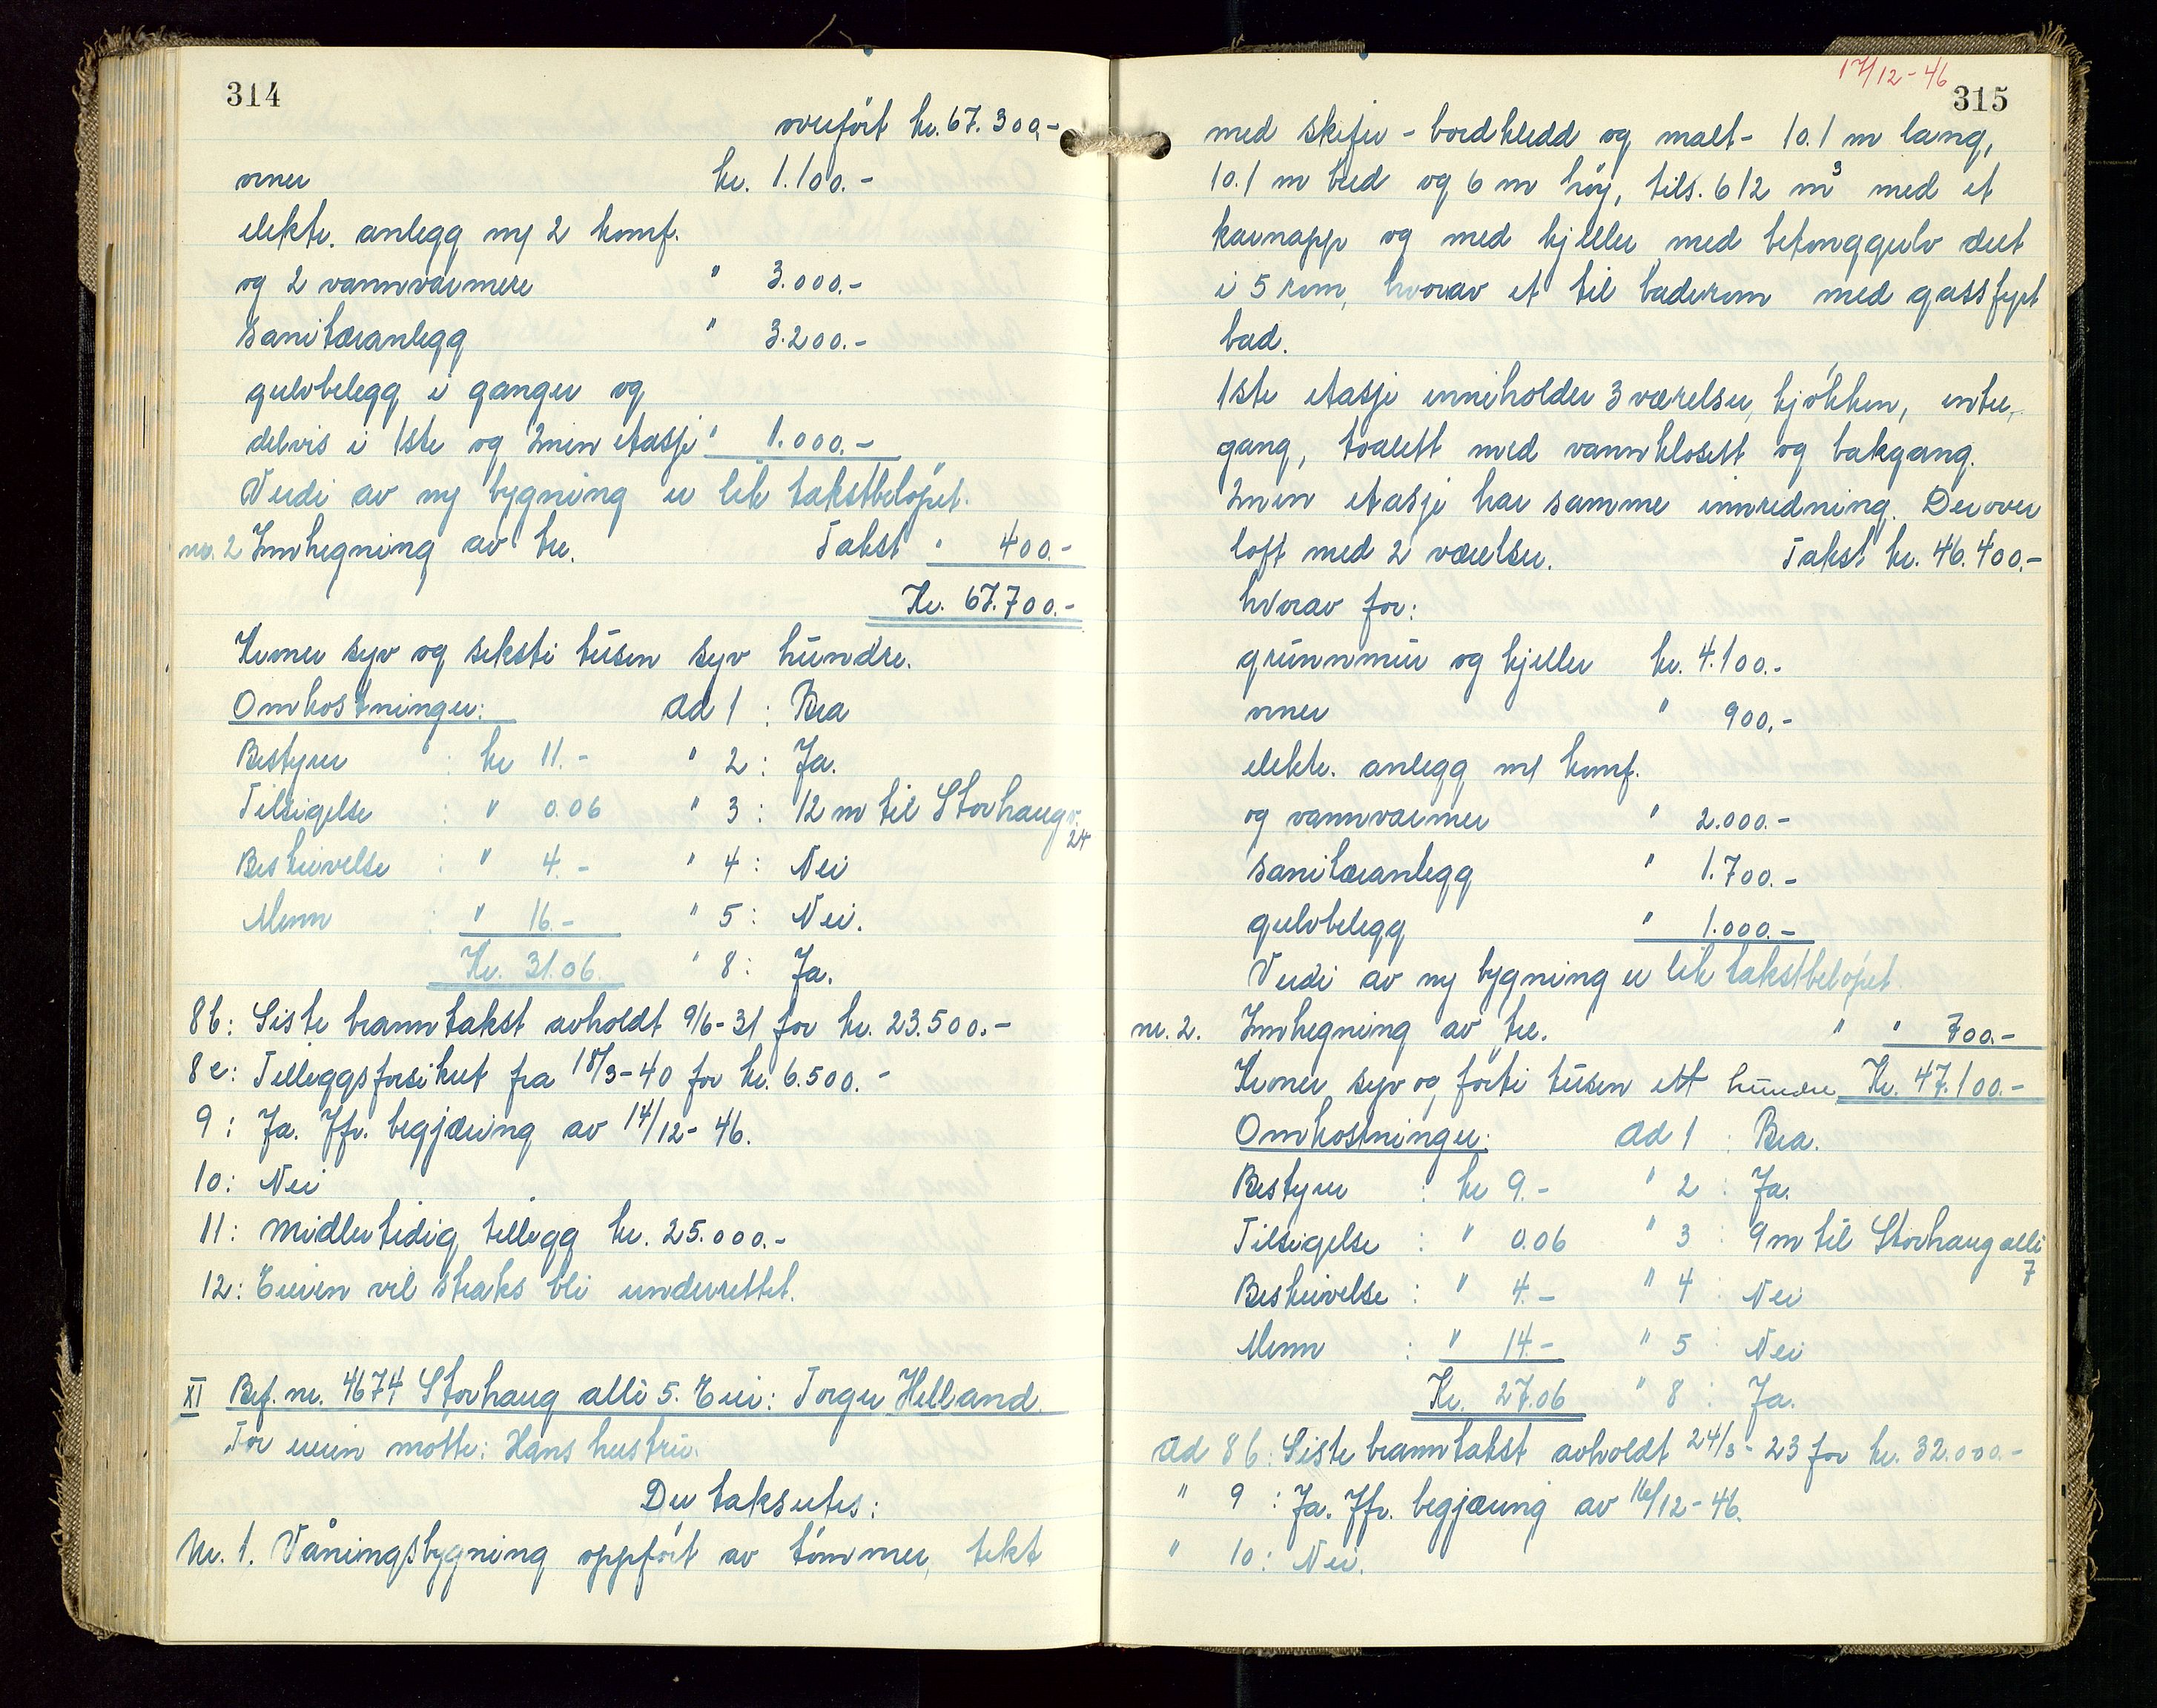 314
overført kr. 67.300,-
ovner kr. 1.100.-
elektr. anlegg m/ 2 komf.
og 2 vannvarmere " 3.000.-
sanitæranlegg " 3.200.-
gulvbelegg i ganger og
delvis i 1ste og 2nen etasje " 1.000.-
Verdi av ny bygning er lik takstbeløpet.
nr. 2 Innhegning av tre. Takst " 400.-
Kr. 67.700.-
Kroner syv og seksti tusen syv hundre.
Omkostninger: ad 1 : Bra
Bestyrer : kr 11.- " 2 : Ja.
Tilsigelse : " 0.06 " 3 : 12 m til Storhaugv.
24
Beskrivelse : " 4.- " 4 : Nei
Menn : " 16.- " 5 : Nei.
Kr. 31.06. " 8 : Ja.
8b: Siste branntakst avholdt 9/6-31 for kr. 23.500.-
8c: Tilleggsforsikret fra 18/3-40 for kr. 6.500.-
9: Ja. Jfr. begjæring av 14/12-46.
10: Nei
11: Midlertidig tillegg kr. 25.000.-
12: Eieren vil straks bli underrettet.
XI Brf. nr. 4674 Storhaug alle 5. Eier: Torger Helland.
For eieren møtte: Hans hustru.
Der takseres:
Nr. 1. Våningsbygning oppført av tømmer, tekt
17/12-46
315
med skifer - bordkledd og malt - 10.1 m lang,
10.1 m bred og 6 m høy, tils. 612 m³ med et
karnapp og med kjeller med betonggulv delt
i 5 rom, hvorav et til baderom med gassfyrt
bad.
1ste etasje inneholder 3 værelser, kjøkken, entre,
gang, toalett med vannklosett og bakgang.
2nen etasje har samme innredning. Derover
loft med 2 værelser. Takst kr. 46.400.-
hvorav for:
grunnmur og kjeller kr. 4.100.-
ovner " 900.-
elektr. anlegg m/ komf.
og vannvarmer " 2.000.-
sanitæranlegg " 1.700.-
gulvbelegg " 1.000.-
Verdi av ny bygning er lik takstbeløpet
nr. 2. Innhegning av tre. " " 700.-
Kroner syv og førti tusen ett hundre. Kr. 47.100.-
Omkostninger: ad 1 : Bra.
Bestyrer : kr 9.- " 2 : Ja.
Tilsigelse : " 0.06 " 3 : 9 m til Storhaug alle
7
Beskrivelse : " 4.- " 4 : Nei
Menn : " 14.- " 5 : Nei
Kr. 27.06 " 8 : Ja.
ad 8b: Siste branntakst avholdt 24/3-23 for kr. 32.000.-
" 9 : Ja. Jfr. begjæring av 16/12-46.
" 10: Nei.